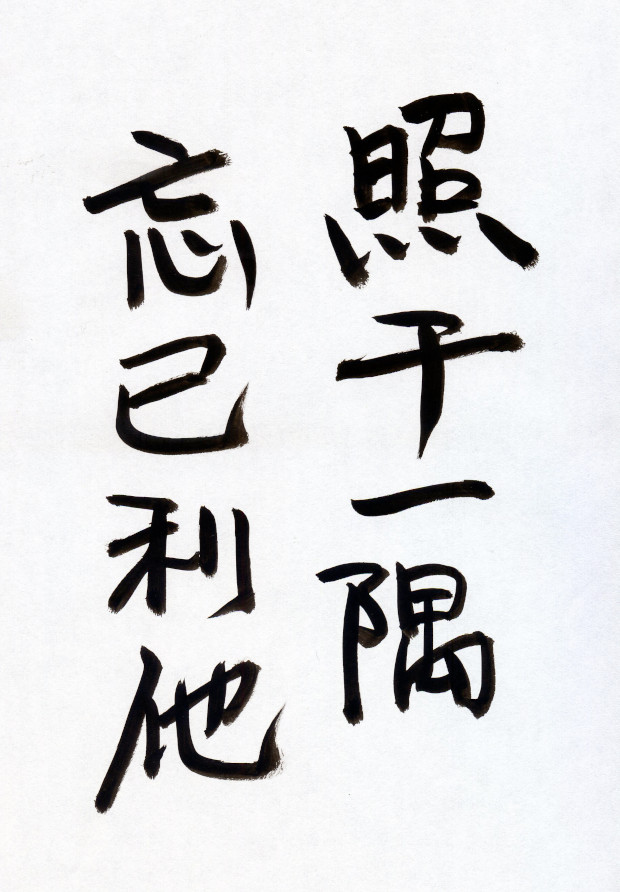 照千一隅
忘己利他